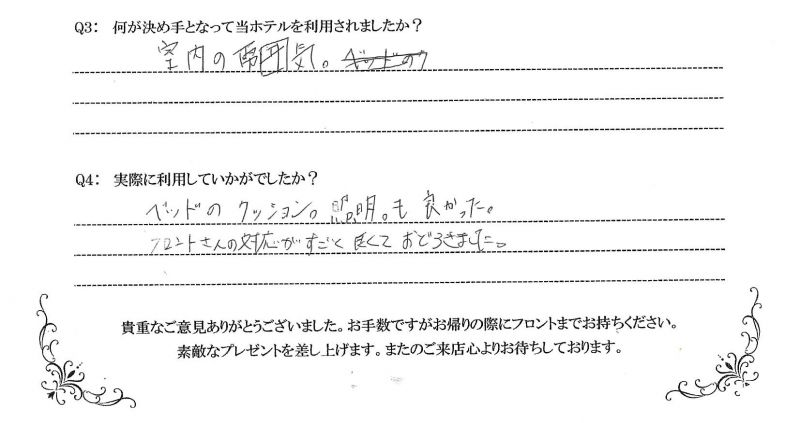 Q3: 何が決め手となって当ホテルを利用されましたか?
室内の雰囲気。ベッドのク
Q4: 実際に利用していかがでしたか?
ベッドのクッション。照明。も良かった。
フロントさんの対応がすごく良くておどろきました。
貴重なご意見ありがとうございました。お手数ですがお帰りの際にフロントまでお持ちください。
素敵なプレゼントを差し上げます。またのご来店心よりお待ちしております。